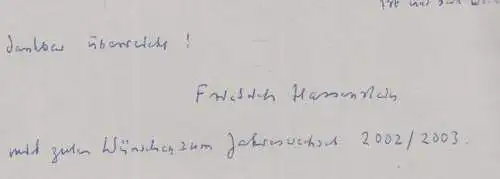 dankbar überreicht!
Friedrich Hassenstein
mit guten Wünschen zum Jahreswechsel 2002/2003.